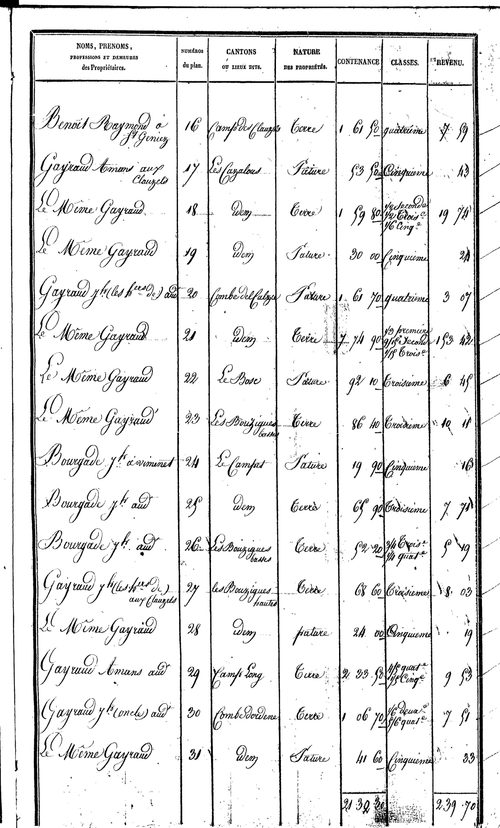 NOMS, PRENOMS, PROFESSIONS ET DEMEURES des Propriétaires. | NUMÉROS du plan. | CANTONS OU LIEUX DITS. | NATURE DES PROPRIÉTÉS. | CONTENANCE | CLASSES. | REVENU.
Benoit Raymond à St Geniez 16 Camp de Clauzels Terre 1 61 50 quatrième 7 59
Gayraud Amans aux Clauzels 17 Les Cazalous Pature 53 50 Cinquieme 43
Le Même Gayraud 18 idem Terre 1 59 80 19 74
Le Même Gayraud 19 idem Pature 30 00 Cinquieme 24
Gayraud jh (les hers de) aud 20 Combe del Pature 1 61 70 quatrième 3 07
Le Même Gayraud 21 idem Terre 7 74 90 1/3 premiere 153 42
Le Même Gayraud 22 Le Bose Pature 92 10 Troisieme 6 45
Le Même Gayraud 23 Les Bouzigues basses Terre 86 40 Troisieme 10 11
Bourgade jh à viminet 24 Le Campet Pature 19 90 Cinquieme 16
Bourgade jh aud 25 idem Terre 65 90 Troisieme 7 71
Bourgade jh aud 26 Les Bouzigues basses Terre 52 20 5 19
Gayraud jh (les hers de) aux Clauzels 27 les Bouzigues hautes Terre 68 60 Troisieme 8 03
Le Même Gayraud 28 idem pature 24 00 Cinquieme 19
Gayraud Amans aud 29 Camp Long Terre 2 33 50 9 53
Gayraud jh (oncle) aud 30 Combe Terre 1 06 70 7 51
Le Même Gayraud 31 idem Pature 41 60 Cinquieme 33
21 32 239 70